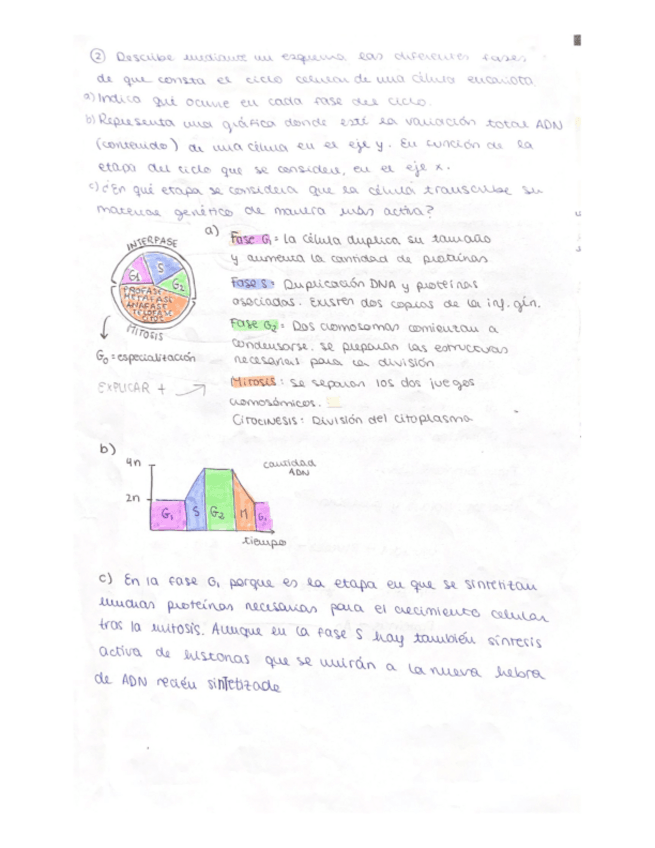 ② Describe mediante un esquema las diferentes fases
de que consta el ciclo celular de una célula eucariota.
a) Indica qué ocurre en cada fase del ciclo.
b) Representa una gráfica donde esté la variación total ADN
(contenido) de una célula en el eje y. En función de la
etapa del ciclo que se considere, en el eje x.
c) ¿En qué etapa se considera que la célula transcribe su
material genético de manera más activa?
a)
INTERFASE
G1
S
G2
PROFASE
METAFASE
ANAFASE
TELOFASE
CITOS
MITOSIS
G0 = especialización
EXPLICAR + →
Fase G1: La célula duplica su tamaño
y aumenta la cantidad de proteínas
Fase S: Duplicación DNA y proteínas
asociadas. Existen dos copias de la inf. gén.
Fase G2: Dos cromosomas comienzan a
condensarse. Se preparan las estructuras
necesarias para la división
Mitosis: se separan los dos juegos
cromosómicos.
Citocinesis: División del citoplasma
b)
4n
2n
G1
S
G2
M
G1
cantidad
ADN
tiempo
c) En la fase G1 porque es la etapa en que se sintetizan
muchas proteínas necesarias para el crecimiento celular
tras la mitosis. Aunque en la fase S hay también síntesis
activa de histonas que se unirán a la nueva hebra
de ADN recién sintetizada